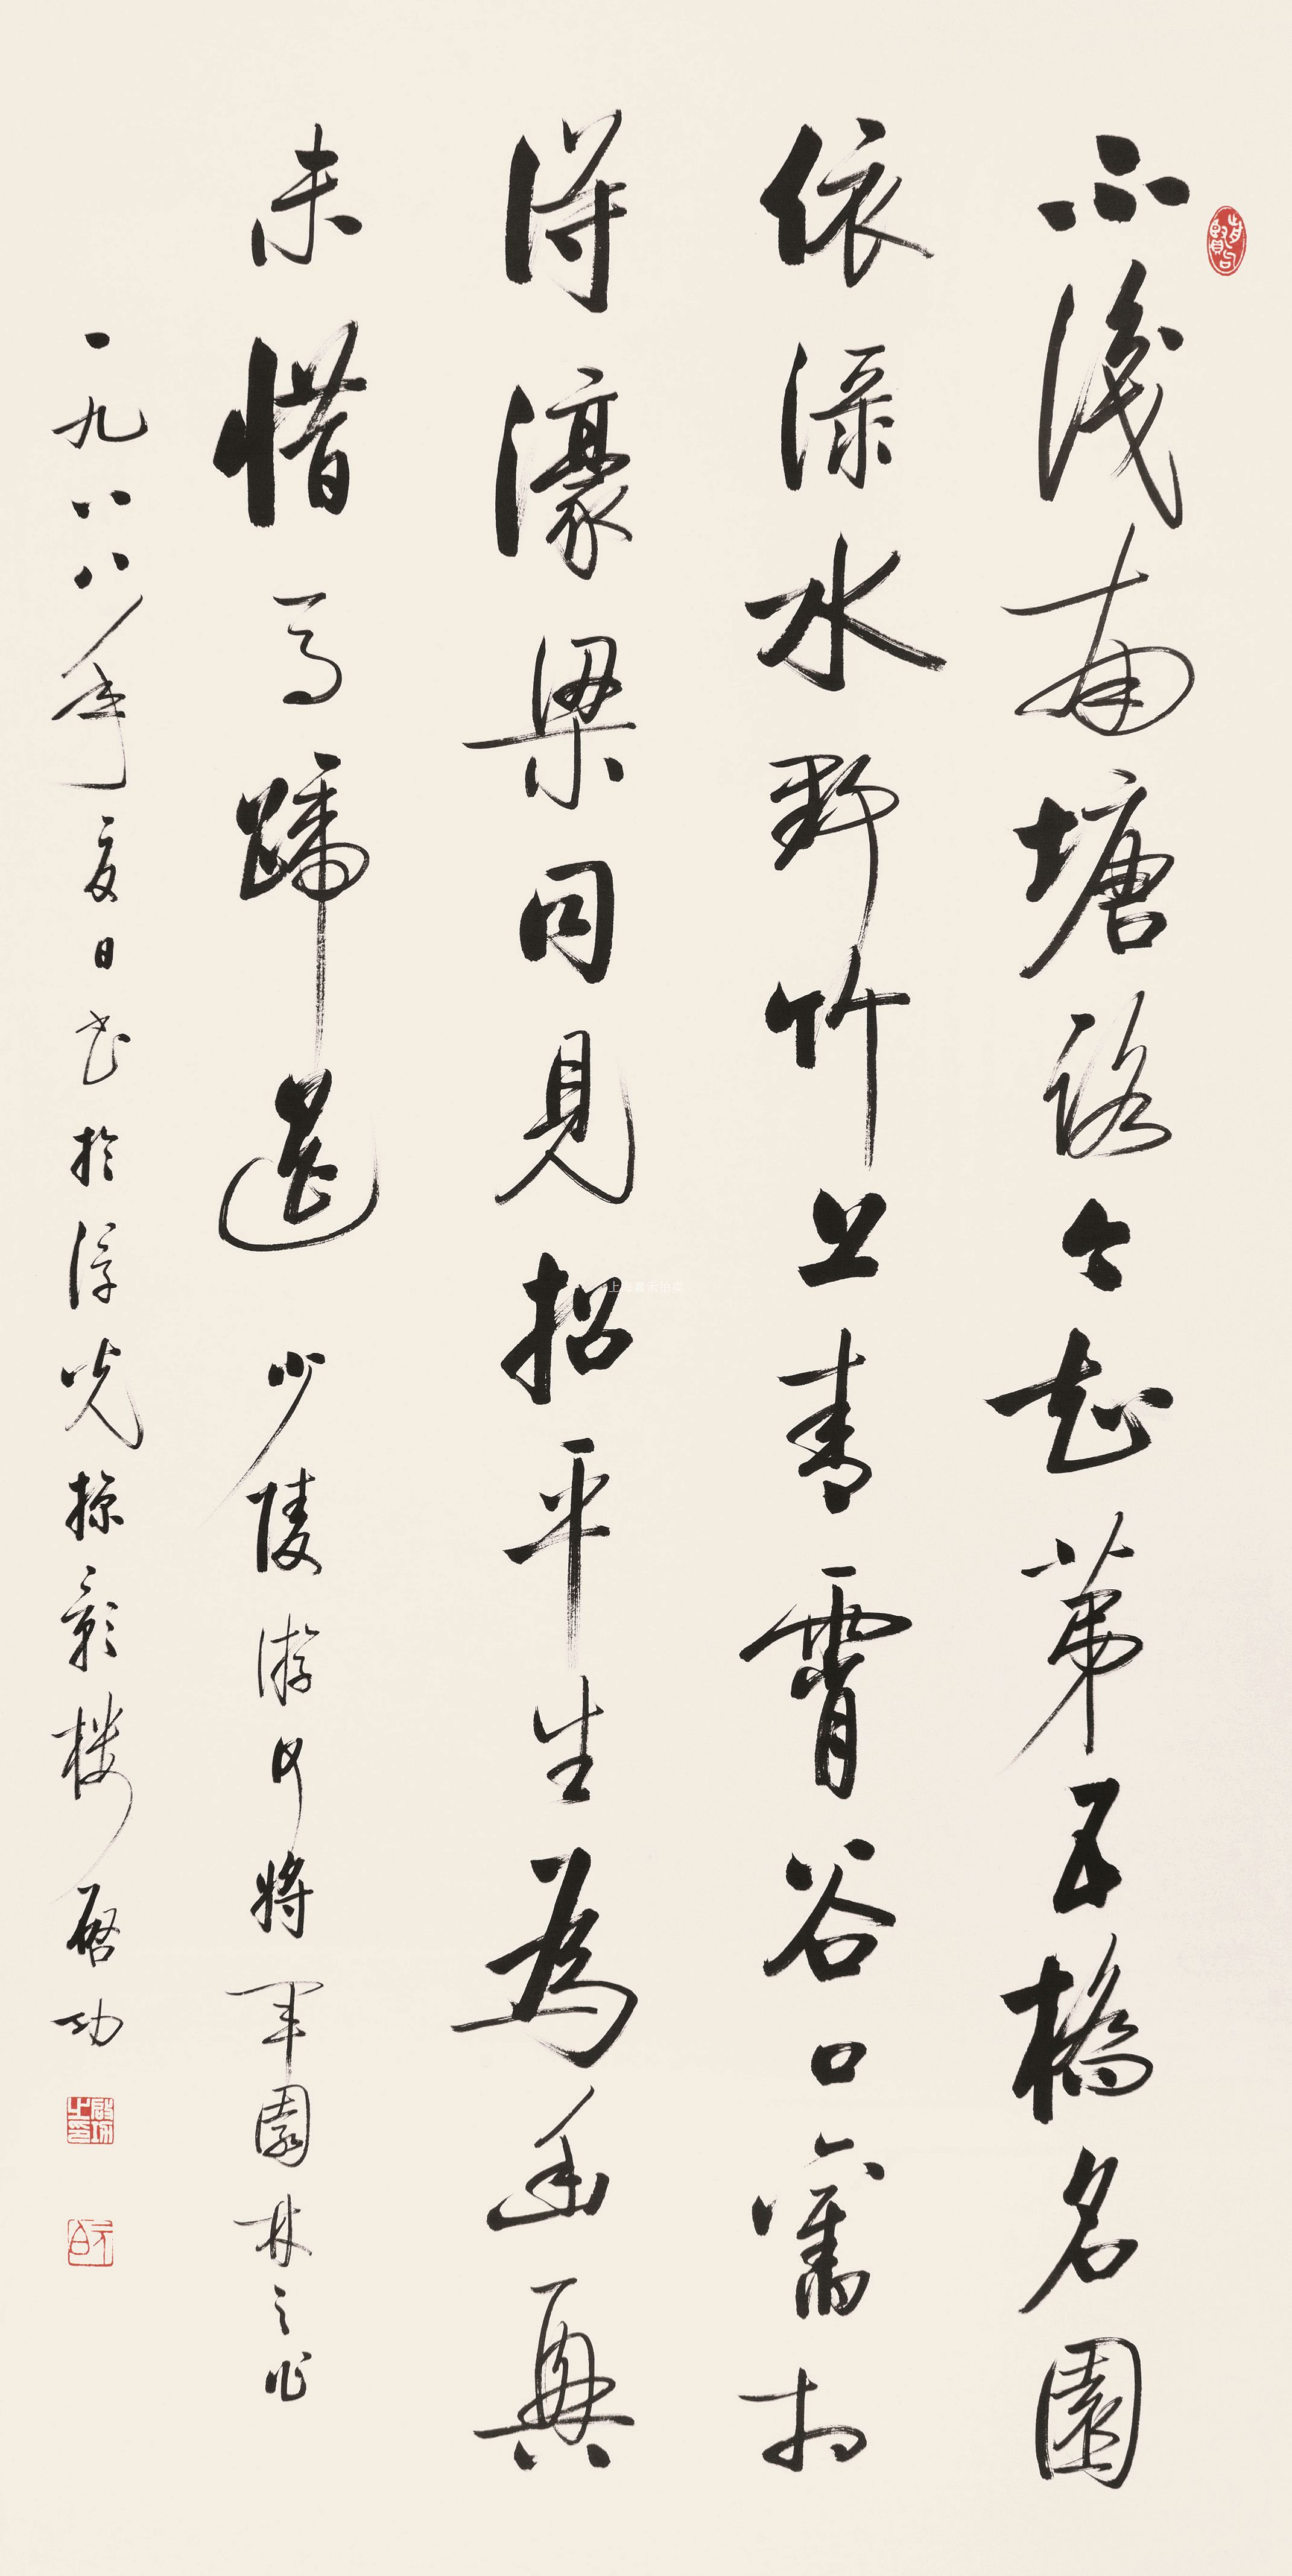 不識南塘路今知第五橋名園
依淥水野竹上青霄谷口舊相
得濠梁同見招平生為幽興
未惜馬蹄遙 少陵游何將軍園林之作
一九八八年夏日書於浮光掠影樓 啓功
啟功之印
元白